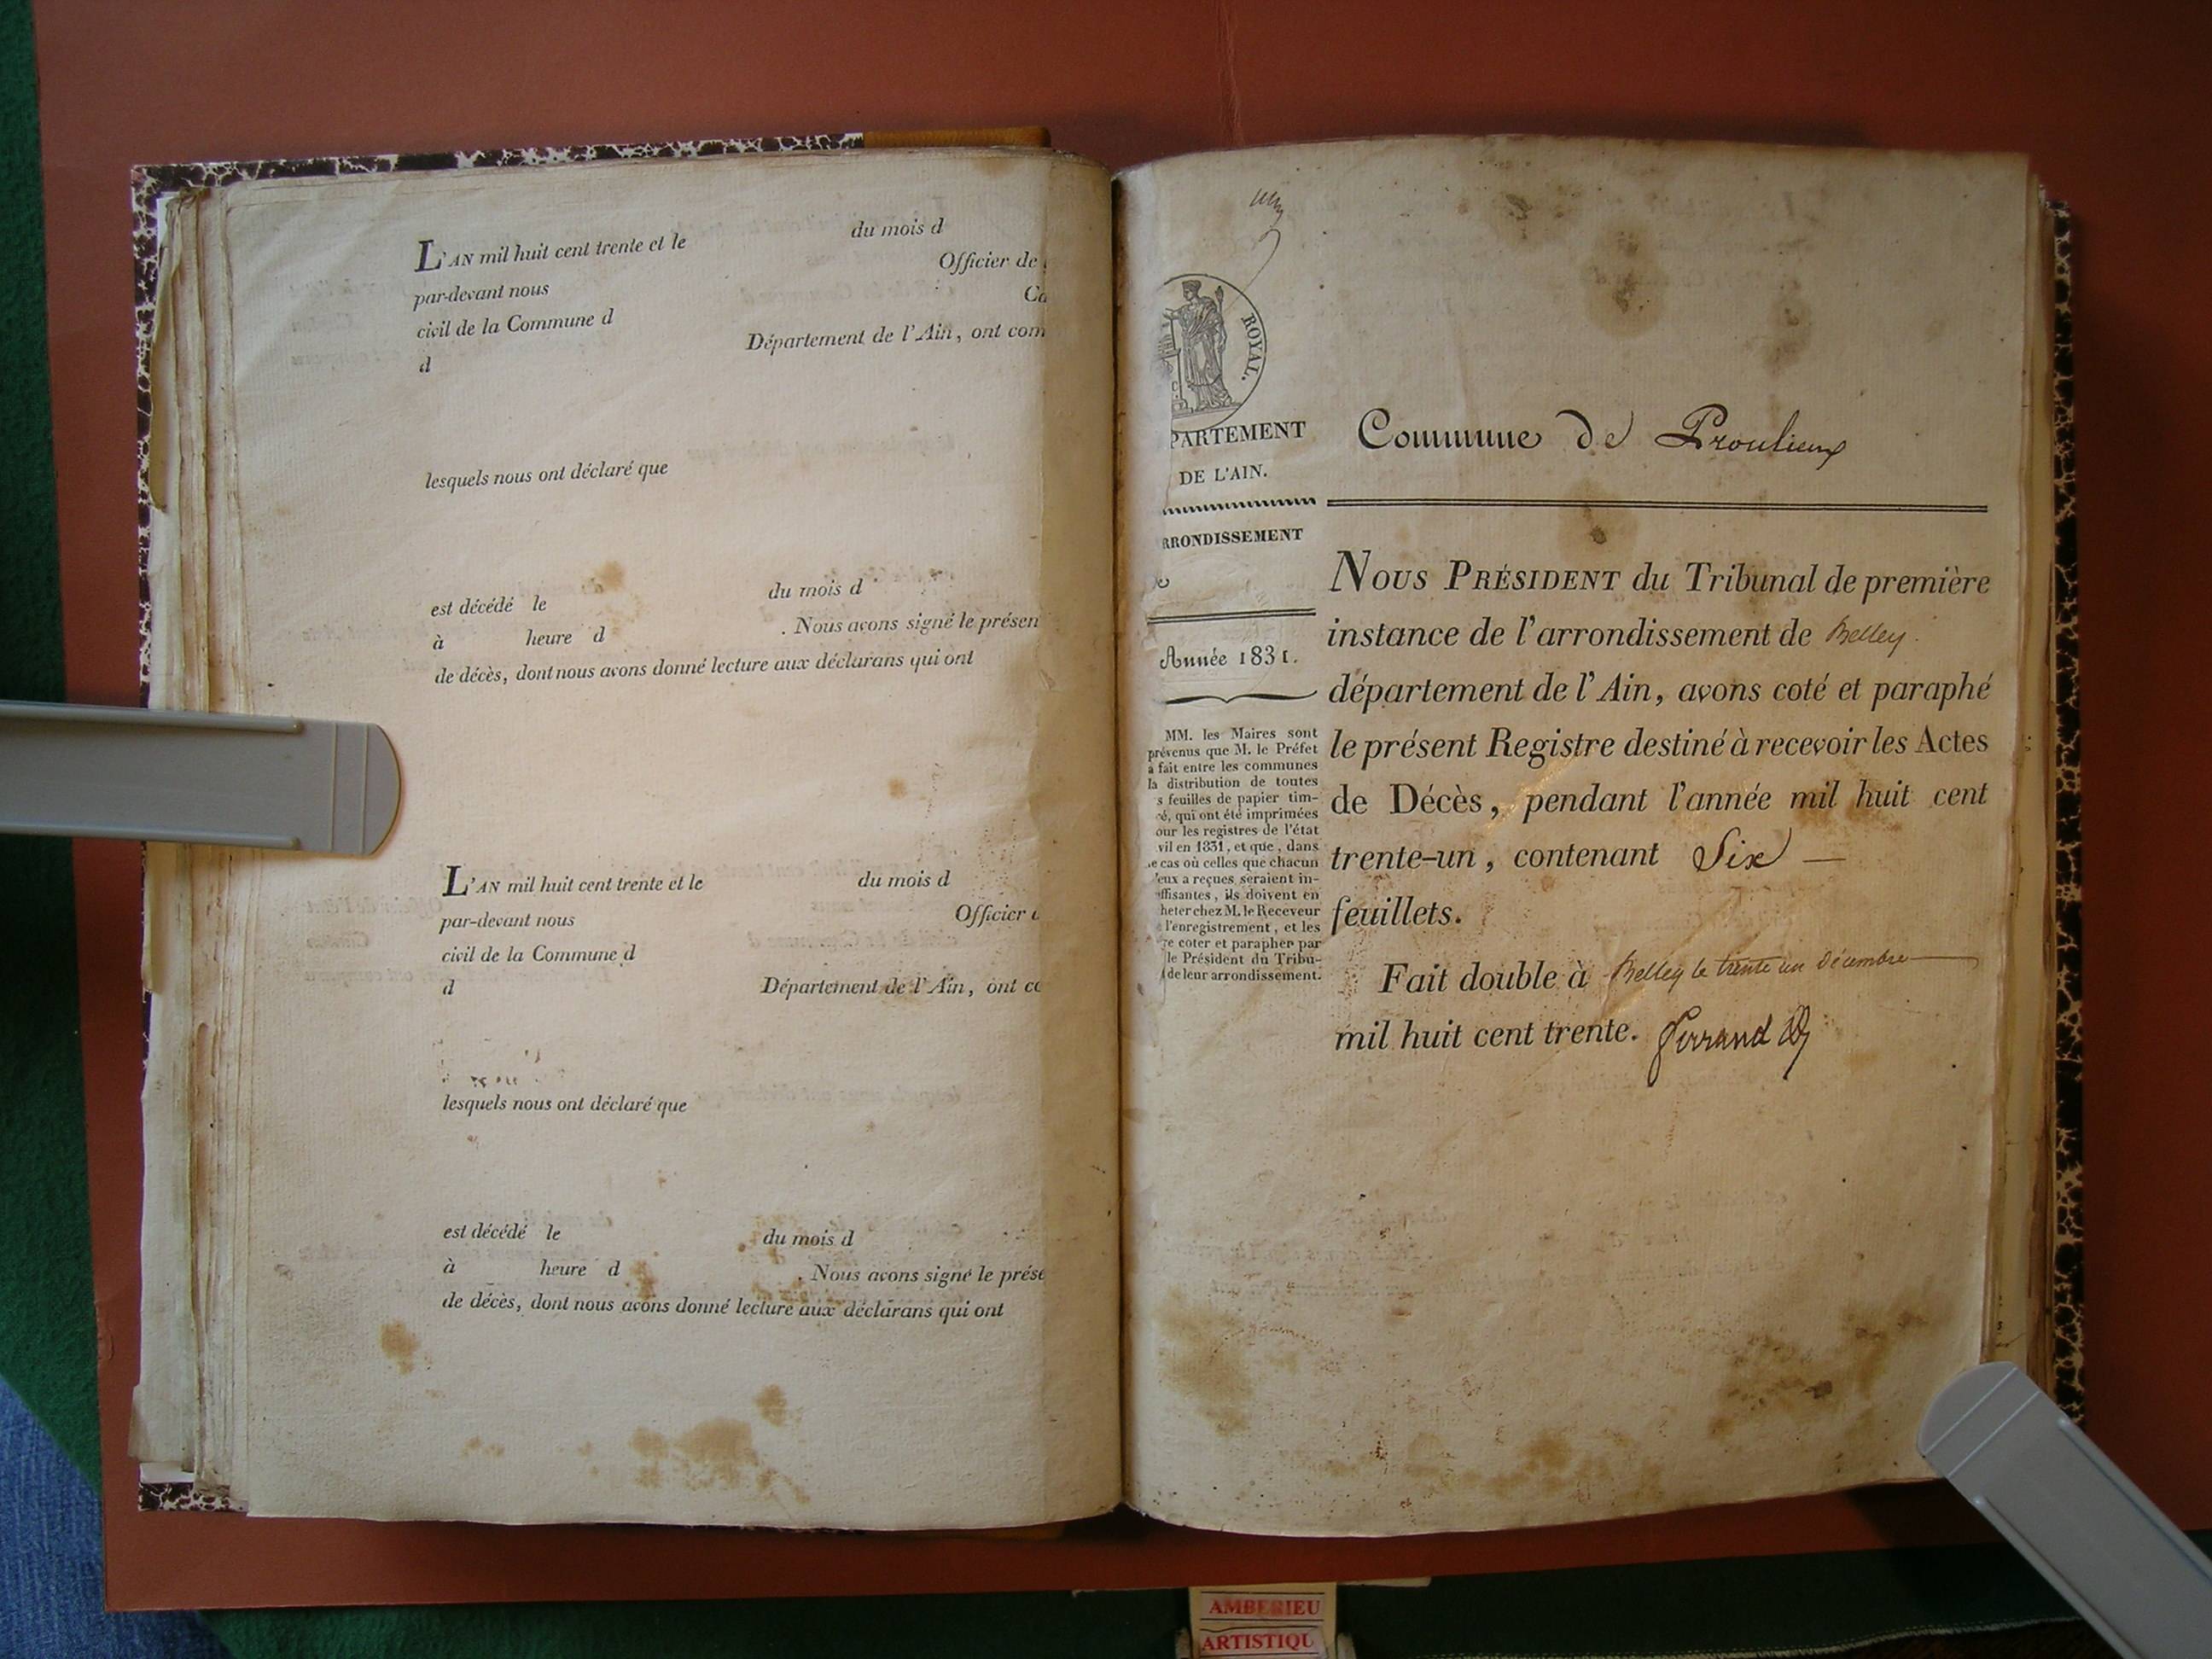 L'AN mil huit cent trente et le du mois d
par-devant nous Officier de
civil de la Commune d Ca
d Département de l'Ain, ont com
lesquels nous ont déclaré que
est décédé le du mois d
à heure d . Nous avons signé le présen
de décès, dont nous avons donné lecture aux déclarans qui ont
L'AN mil huit cent trente et le du mois d
par-devant nous Officier d
civil de la Commune d
d Département de l'Ain, ont co
lesquels nous ont déclaré que
est décédé le du mois d
à heure d . Nous avons signé le prése
de décès, dont nous avons donné lecture aux déclarans qui ont
ROYAL.
PARTEMENT
DE L'AIN.
RRONDISSEMENT
Année 1831.
MM. les Maires sont
prévenus que M. le Préfet
a fait entre les communes
la distribution de toutes
s feuilles de papier tim-
ré, qui ont été imprimées
our les registres de l'état
vil en 1831, et que, dans
e cas où celles que chacun
'eux a reçues seraient in-
ffisantes, ils doivent en
heter chez M. le Receveur
l'enregistrement, et les
re coter et parapher par
le Président du Tribu-
de leur arrondissement.
Commune de Proulieux
NOUS PRÉSIDENT du Tribunal de première
instance de l'arrondissement de Belley.
département de l'Ain, avons coté et paraphé
le présent Registre destiné à recevoir les Actes
de Décès, pendant l'année mil huit cent
trente-un, contenant Six —
feuillets.
Fait double à Belley le trente un Décembre
mil huit cent trente. Ferrand
AMBERIEU
ARTISTIQU